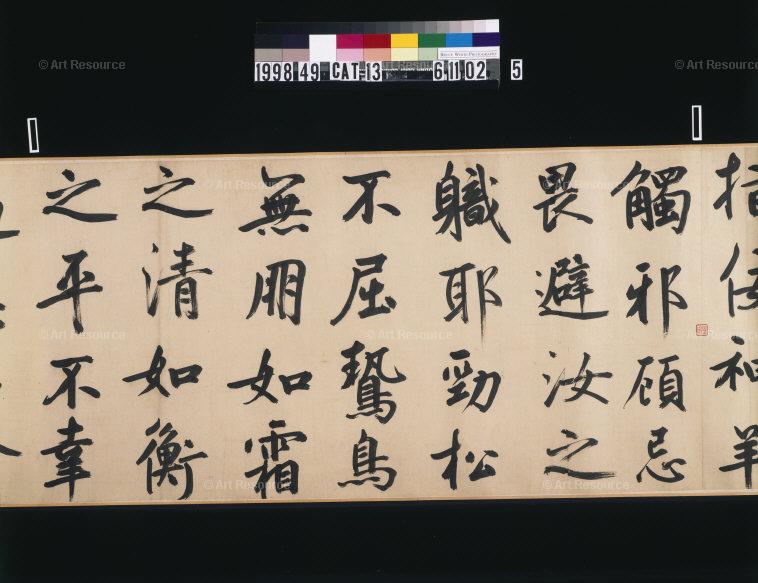 1998 49 CAT 13 6 11 02 5
BRUCE WHITE PHOTOGRAPHY
指佞神羊
觸邪顧忌
畏避汝之
軄耶勁松
不屈鷙鳥
無朋如霜
之清如衡
之平不
© Art Resource
© Art Resource
© Art Resource
© Art Resource
© Art Resource
© Art Resource
© Art Resource
© Art Resource
© Art Resource
© Art Resource